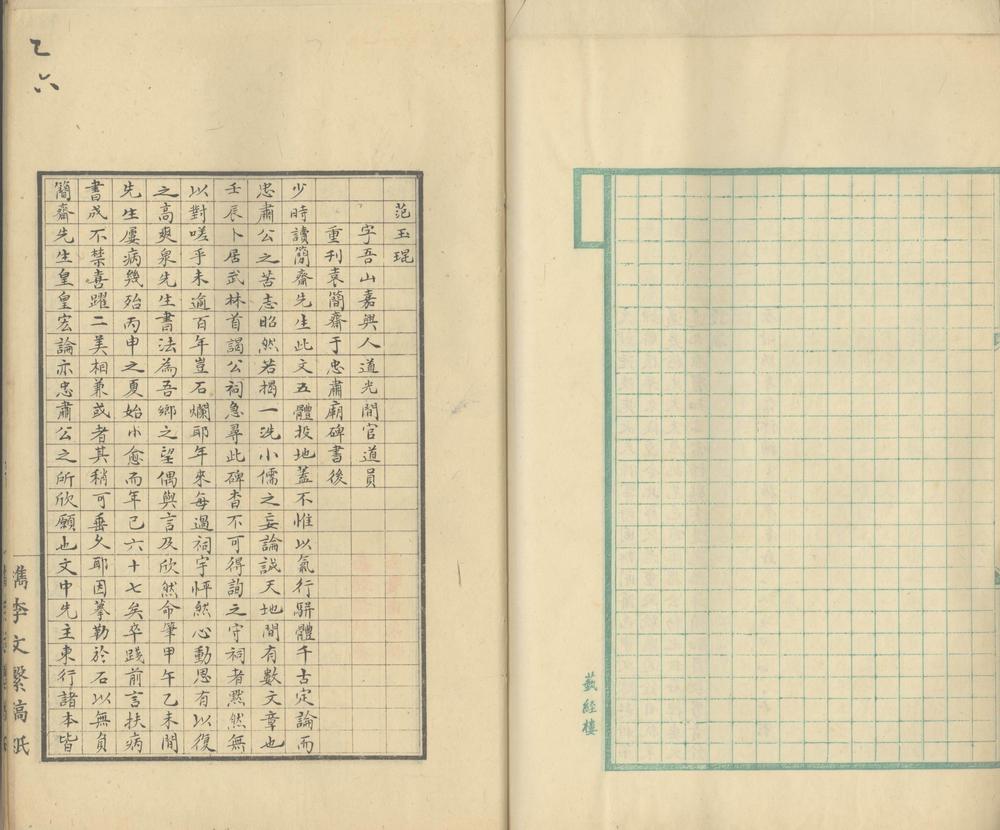 藝經樓
乙六
范玉琨
字吾山嘉興人道光間官道員
重刊袁簡齋于忠肅廟碑書後
少時讀簡齋先生此文五體投地蓋不惟以氣行駢體千古定論而
忠肅公之苦志昭然若揭一洗小儒之妄論誠天地間有數文章也
壬辰卜居武林首謁公祠急尋此碑杳不可得詢之守祠者默然無
以對嗟乎未逾百年豈石爛耶年來每過祠宇怦然心動思有以復
之高爽泉先生書法為吾鄉之望偶與言及欣然命筆甲午乙未間
先生屢病幾殆丙申之夏始小愈而年已六十七矣卒踐前言扶病
書成不禁喜躍二美相兼或者其稍可垂久耶因摹勒於石以無負
簡齋先生皇皇宏論亦忠肅公之所欣願也文中先主東行諸本皆
檇李文繫稿紙